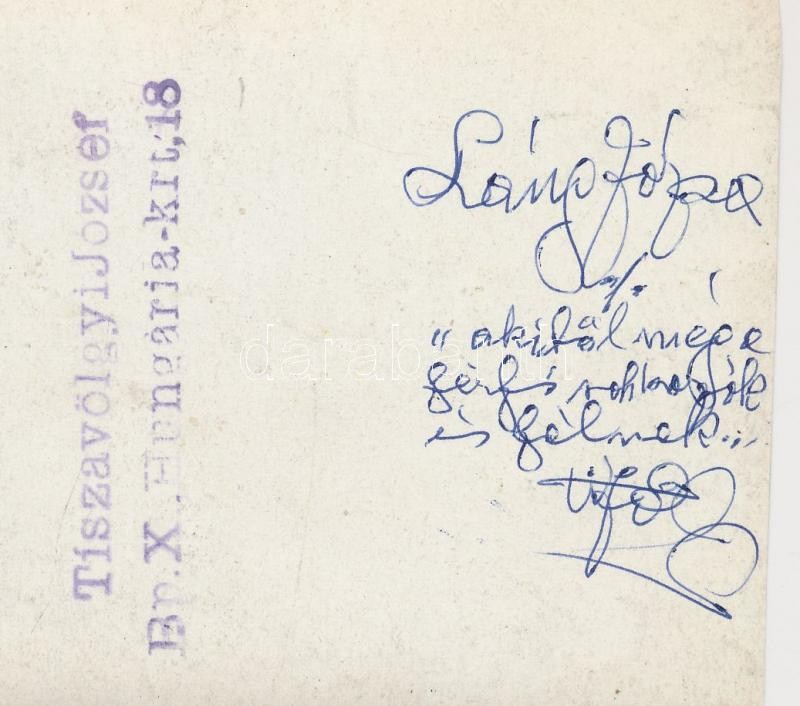 TiszavölgyiJozsef
Bp.X.Hungária-krt,18
Láng Józsa
./.
"akitől még a
férfi rokkagók
és félnek..."
darabanth